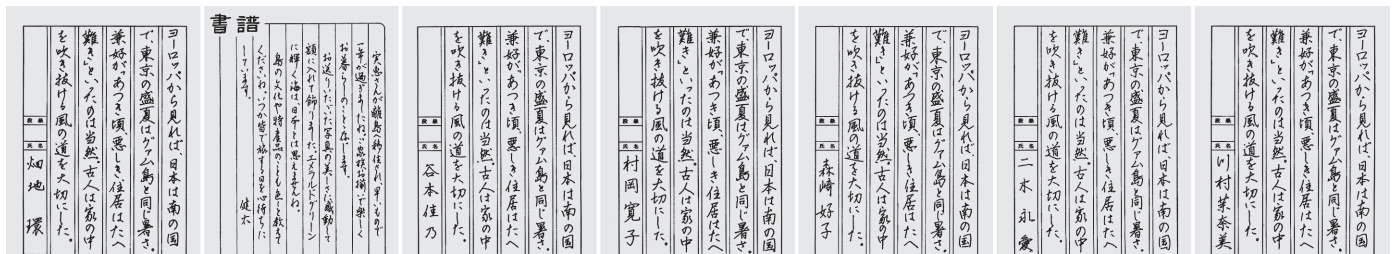 ヨーロッパから見れば、日本は南の国
で、東京の盛夏はグァム島と同じ暑さ。
兼好が「あつき頃、悪しき住居はたへ
難き」といったのは当然。古人は家の中
を吹き抜ける風の道を大切にした。
段級
氏名
畑地環
書譜
実恵さんが離島へ移住され、早いもので
一年が過ぎましたね。家族お揃いで楽しく
お暮らしのことと存じます。
お送りいただいた写真の美しさに感動して
額に入れて飾りました。エメラルドグリーン
に輝く海は、日本とは思えませんね。
島の文化や特産品のことも色々と教えて
くださいね。いつか皆で旅する日を心待ちに
しています。
健太
ヨーロッパから見れば、日本は南の国
で、東京の盛夏はグァム島と同じ暑さ。
兼好が「あつき頃、悪しき住居はたへ
難き」といったのは当然。古人は家の中
を吹き抜ける風の道を大切にした。
段級
氏名
谷本佳乃
ヨーロッパから見れば、日本は南の国
で、東京の盛夏はグァム島と同じ暑さ。
兼好が「あつき頃、悪しき住居はたへ
難き」といったのは当然。古人は家の中
を吹き抜ける風の道を大切にした。
段級
氏名
村岡寛子
ヨーロッパから見れば、日本は南の国
で、東京の盛夏はグァム島と同じ暑さ。
兼好が「あつき頃、悪しき住居はたへ
難き」といったのは当然。古人は家の中
を吹き抜ける風の道を大切にした。
段級
氏名
森崎好子
ヨーロッパから見れば、日本は南の国
で、東京の盛夏はグァム島と同じ暑さ。
兼好が「あつき頃、悪しき住居はたへ
難き」といったのは当然。古人は家の中
を吹き抜ける風の道を大切にした。
段級
氏名
二木永愛
ヨーロッパから見れば、日本は南の国
で、東京の盛夏はグァム島と同じ暑さ。
兼好が「あつき頃、悪しき住居はたへ
難き」といったのは当然。古人は家の中
を吹き抜ける風の道を大切にした。
段級
氏名
川村菜奈美